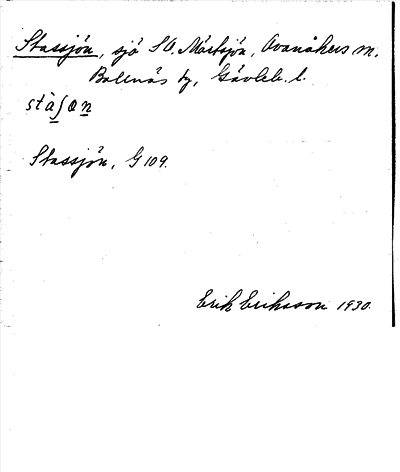 Stassjön, sjö SO. Mårtsjön, Ovanåkers sn.
Bollnäs tg, Gävleb. l.
stàʃøn
Stassjön, G 109.
Erik Eriksson 1930.